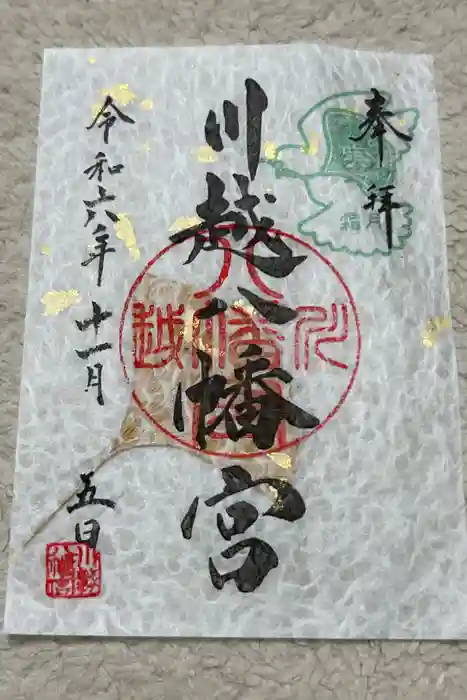 奉拝
霜月
川越八幡宮
令和六年十一月
五日